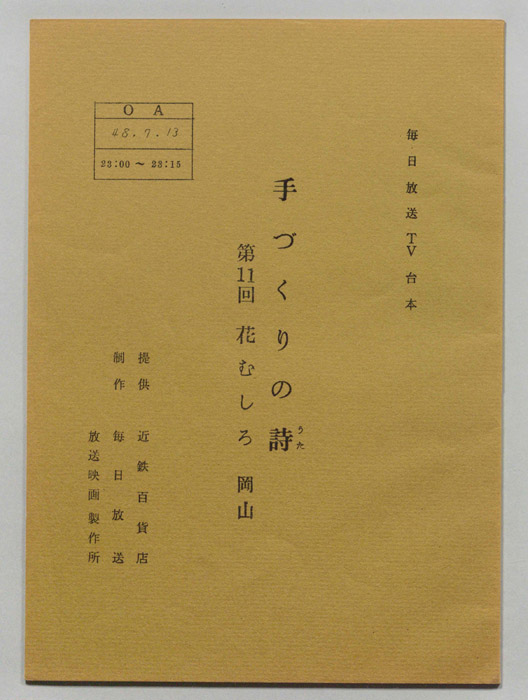 毎日放送TV台本
手づくりの詩
うた
第11回 花むしろ 岡山
OA
48.7.13
23:00～23:15
提供 近鉄百貨店
制作 毎日放送
放送映画製作所